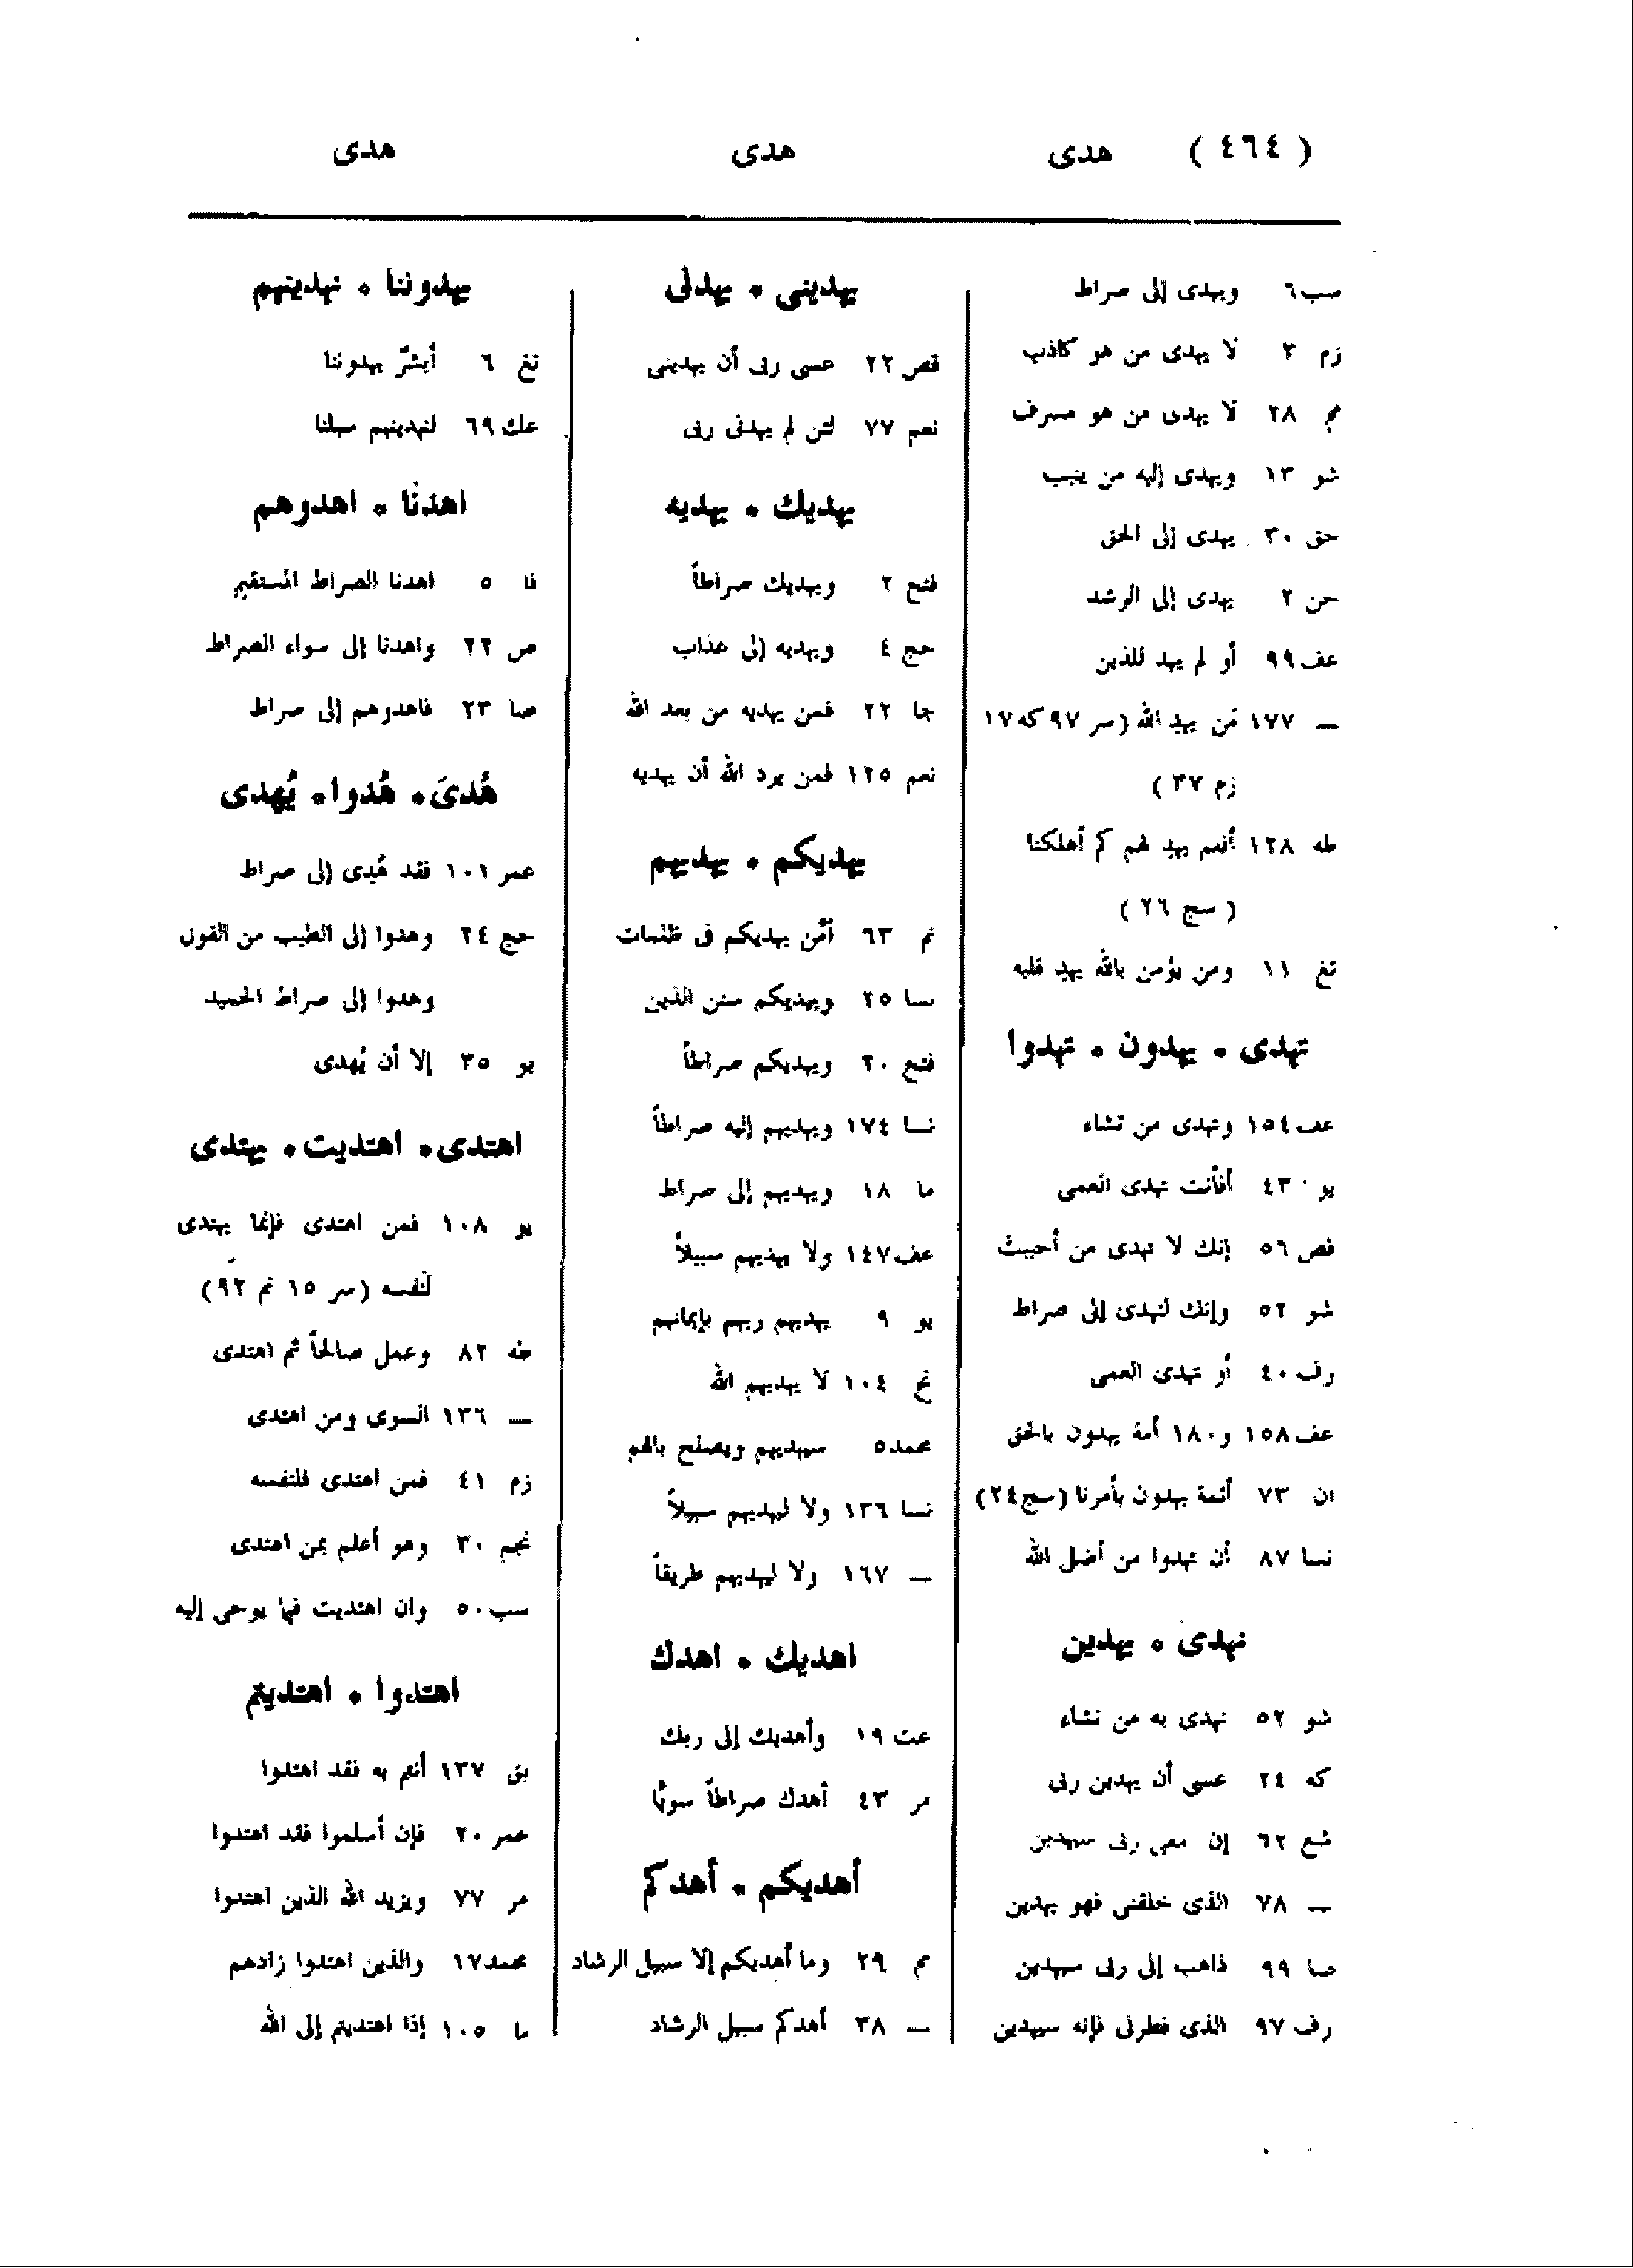 ( ٤٦٤ ) هدى هدى هدى
سب ٦ ويهدى إلى صراط
زم ٣ لا يهدى من هو كاذب
مم ٢٨ لا يهدى من هو مسرف
شو ١٣ ويهدى إليه من ينيب
حق ٣٠ يهدى إلى الحق
حن ٢ يهدى إلى الرشد
عف ٩٩ أو لم يهد للذين
— ١٧٧ مَن يهدِ الله (سر ٩٧ كه ١٧
زم ٣٧ )
طه ١٢٨ أفلم يهدِ لهم كم أهلكنا
( سج ٢٦ )
تغ ١١ ومن يؤمن بالله يهدِ قلبه
تهدى ٠ يهدون ٠ تهدوا
عف ١٥٤ وتهدى من تشاء
يو ٤٣ أفأنت تهدى العمى
قص ٥٦ إنك لا تهدى من أحببتَ
شو ٥٢ وإنك لتهدى إلى صراط
رف ٤٠ أو تهدى العمى
عف ١٥٨ و ١٨٠ أمة يهدون بالحق
ان ٧٣ أئمة يهدون بأمرنا (سج ٢٤)
نسا ٨٧ أن تهدوا من أضل الله
نهدى ٠ يهدين
شو ٥٢ نهدى به من نشاء
كه ٢٤ عسى أن يهدين ربى
شع ٦٢ إن معى ربى سيهدين
— ٧٨ الذى خلقنى فهو يهدين
صا ٩٩ ذاهب إلى ربى سيهدين
رف ٩٧ الذى فطرنى فإنه سيهدين
يهدينى ٠ يهدنى
قص ٢٢ عسى ربى أن يهدينى
نعم ٧٧ لئن لم يهدنى ربى
يهديك ٠ يهديه
فتح ٢ ويهديك صراطاً
حج ٤ ويهديه إلى عذاب
جا ٢٢ فمن يهديه من بعد الله
نعم ١٢٥ فمن يرد الله أن يهديه
يهديكم ٠ يهديهم
نم ٦٣ أمَّن يهديكم فى ظلمات
نسا ٢٥ ويهديكم سنن الذين
فتح ٢٠ ويهديكم صراطاً
نسا ١٧٤ ويهديهم إليه صراطاً
ما ١٨ ويهديهم إلى صراط
عف ١٤٧ ولا يهديهم سبيلاً
يو ٩ يهديهم ربهم بإيمانهم
نح ١٠٤ لا يهديهم الله
محمد ٥ سيهديهم ويصلح بالهم
نسا ١٣٦ ولا ليهديهم سبيلاً
— ١٦٧ ولا ليهديهم طريقاً
اهديك ٠ اهدك
عت ١٩ وأهديك إلى ربك
مر ٤٣ أهدك صراطاً سويًّا
أهديكم ٠ أهدكم
مم ٢٩ وما أهديكم إلا سبيل الرشاد
— ٣٨ أهدكم سبيل الرشاد
يهدوننا ٠ نهدينهم
تغ ٦ أبشرٌ يهدوننا
عك ٦٩ لنهدينهم سبلنا
اهدنا ٠ اهدوهم
فا ٥ اهدنا الصراط المستقيم
ص ٢٢ واهدنا إلى سواء الصراط
صا ٢٣ فاهدوهم إلى صراط
هُدىَ ٠ هُدوا ٠ يُهدى
عمر ١٠١ فقد هُدِى إلى صراط
حج ٢٤ وهدوا إلى الطيب من القول
وهدوا إلى صراط الحميد
يو ٣٥ إلا أن يُهدى
اهتدى ٠ اهتديت ٠ يهتدى
يو ١٠٨ فمن اهتدى فإنما يهتدى
لنفسه (سر ١٥ نم ٩٢)
طه ٨٢ وعمل صالحاً ثم اهتدى
— ١٣٦ السوى ومن اهتدى
زم ٤١ فمن اهتدى فلنفسه
نجم ٣٠ وهو أعلم بمن اهتدى
سب ٥٠ وان اهتديت فبما يوحى إليه
اهتدوا ٠ اهتديتم
بق ١٣٧ أنتم به فقد اهتدوا
عمر ٢٠ فإن أسلموا فقد اهتدوا
مر ٧٧ ويزيد الله الذين اهتدوا
محمد ١٧ والذين اهتدوا زادهم
ما ١٠٥ إذا اهتديتم إلى الله